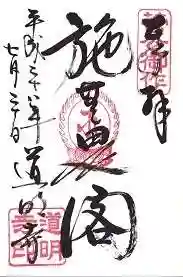 奉拝
施無畏閣
平成二十八年
七月二十日
道明寺
道明
寺印